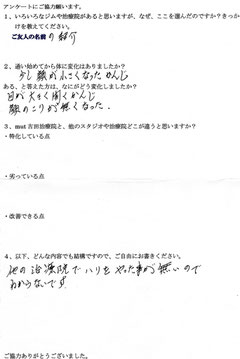 アンケートにご協力願います。
1、いろいろなジムや治療院があると思いますが、なぜ、ここを選んだのですか？きっか
けを教えてください。
ご友人の名前の紹介
2、通い始めてから体に変化はありましたか？
少し顔が小さくなったかんじ
ある、と答えた方は、なにがどう変化しましたか？
目が大きく開くかんじ
顔のこりが無くなった。
3、mut 吉田治療院と、他のスタジオや治療院とどこが違うと思いますか？
・特化している点
・劣っている点
・改善できる点
4、以下、どんな内容でも結構ですので、ご自由にお書きください。
他の治療院でハリをやった事が無いので
わからないです
ご協力ありがとうございました。